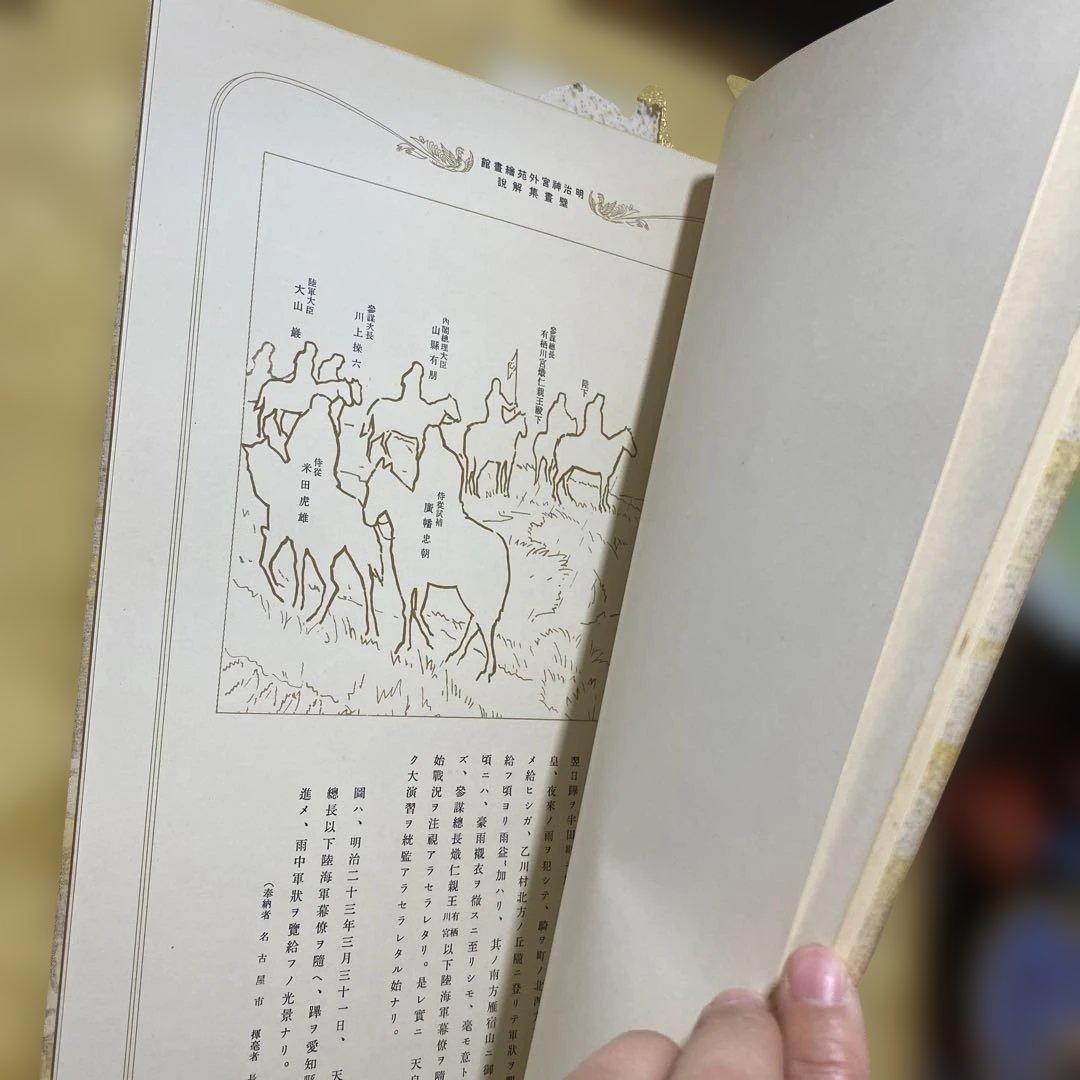 明治神宮外苑繪畫館
壁畫集解說
陛下
參謀總長
有栖川宮熾仁親王殿下
內閣總理大臣
山縣有朋
參謀次長
川上操六
陸軍大臣
大山巖
侍從試補
廣幡忠朝
侍從
米田虎雄
翌日蹕ヲ半田
皇、夜來ノ雨ヲ犯シテ、騎ヲ町ノ北
メ給ヒシガ、乙川村北方ノ丘隴ニ登リテ軍狀ヲ
給フ頃ヨリ雨益〻加ハリ、其ノ南方雁宿山ニ御
頃ニハ、豪雨襯衣ヲ徹スニ至リシモ、毫モ意ト
ズ、參謀總長熾仁親王有栖川宮以下陸海軍幕僚ヲ隨
始戰況ヲ注視アラセラレタリ。是レ實ニ 天皇
ク大演習ヲ統監アラセラレタル始ナリ。
圖ハ、明治二十三年三月三十一日、天
總長以下陸海軍幕僚ヲ隨ヘ、蹕ヲ愛知縣
進メ、雨中軍狀ヲ覽給フノ光景ナリ。
(奉納者 名古屋市 揮毫者 長